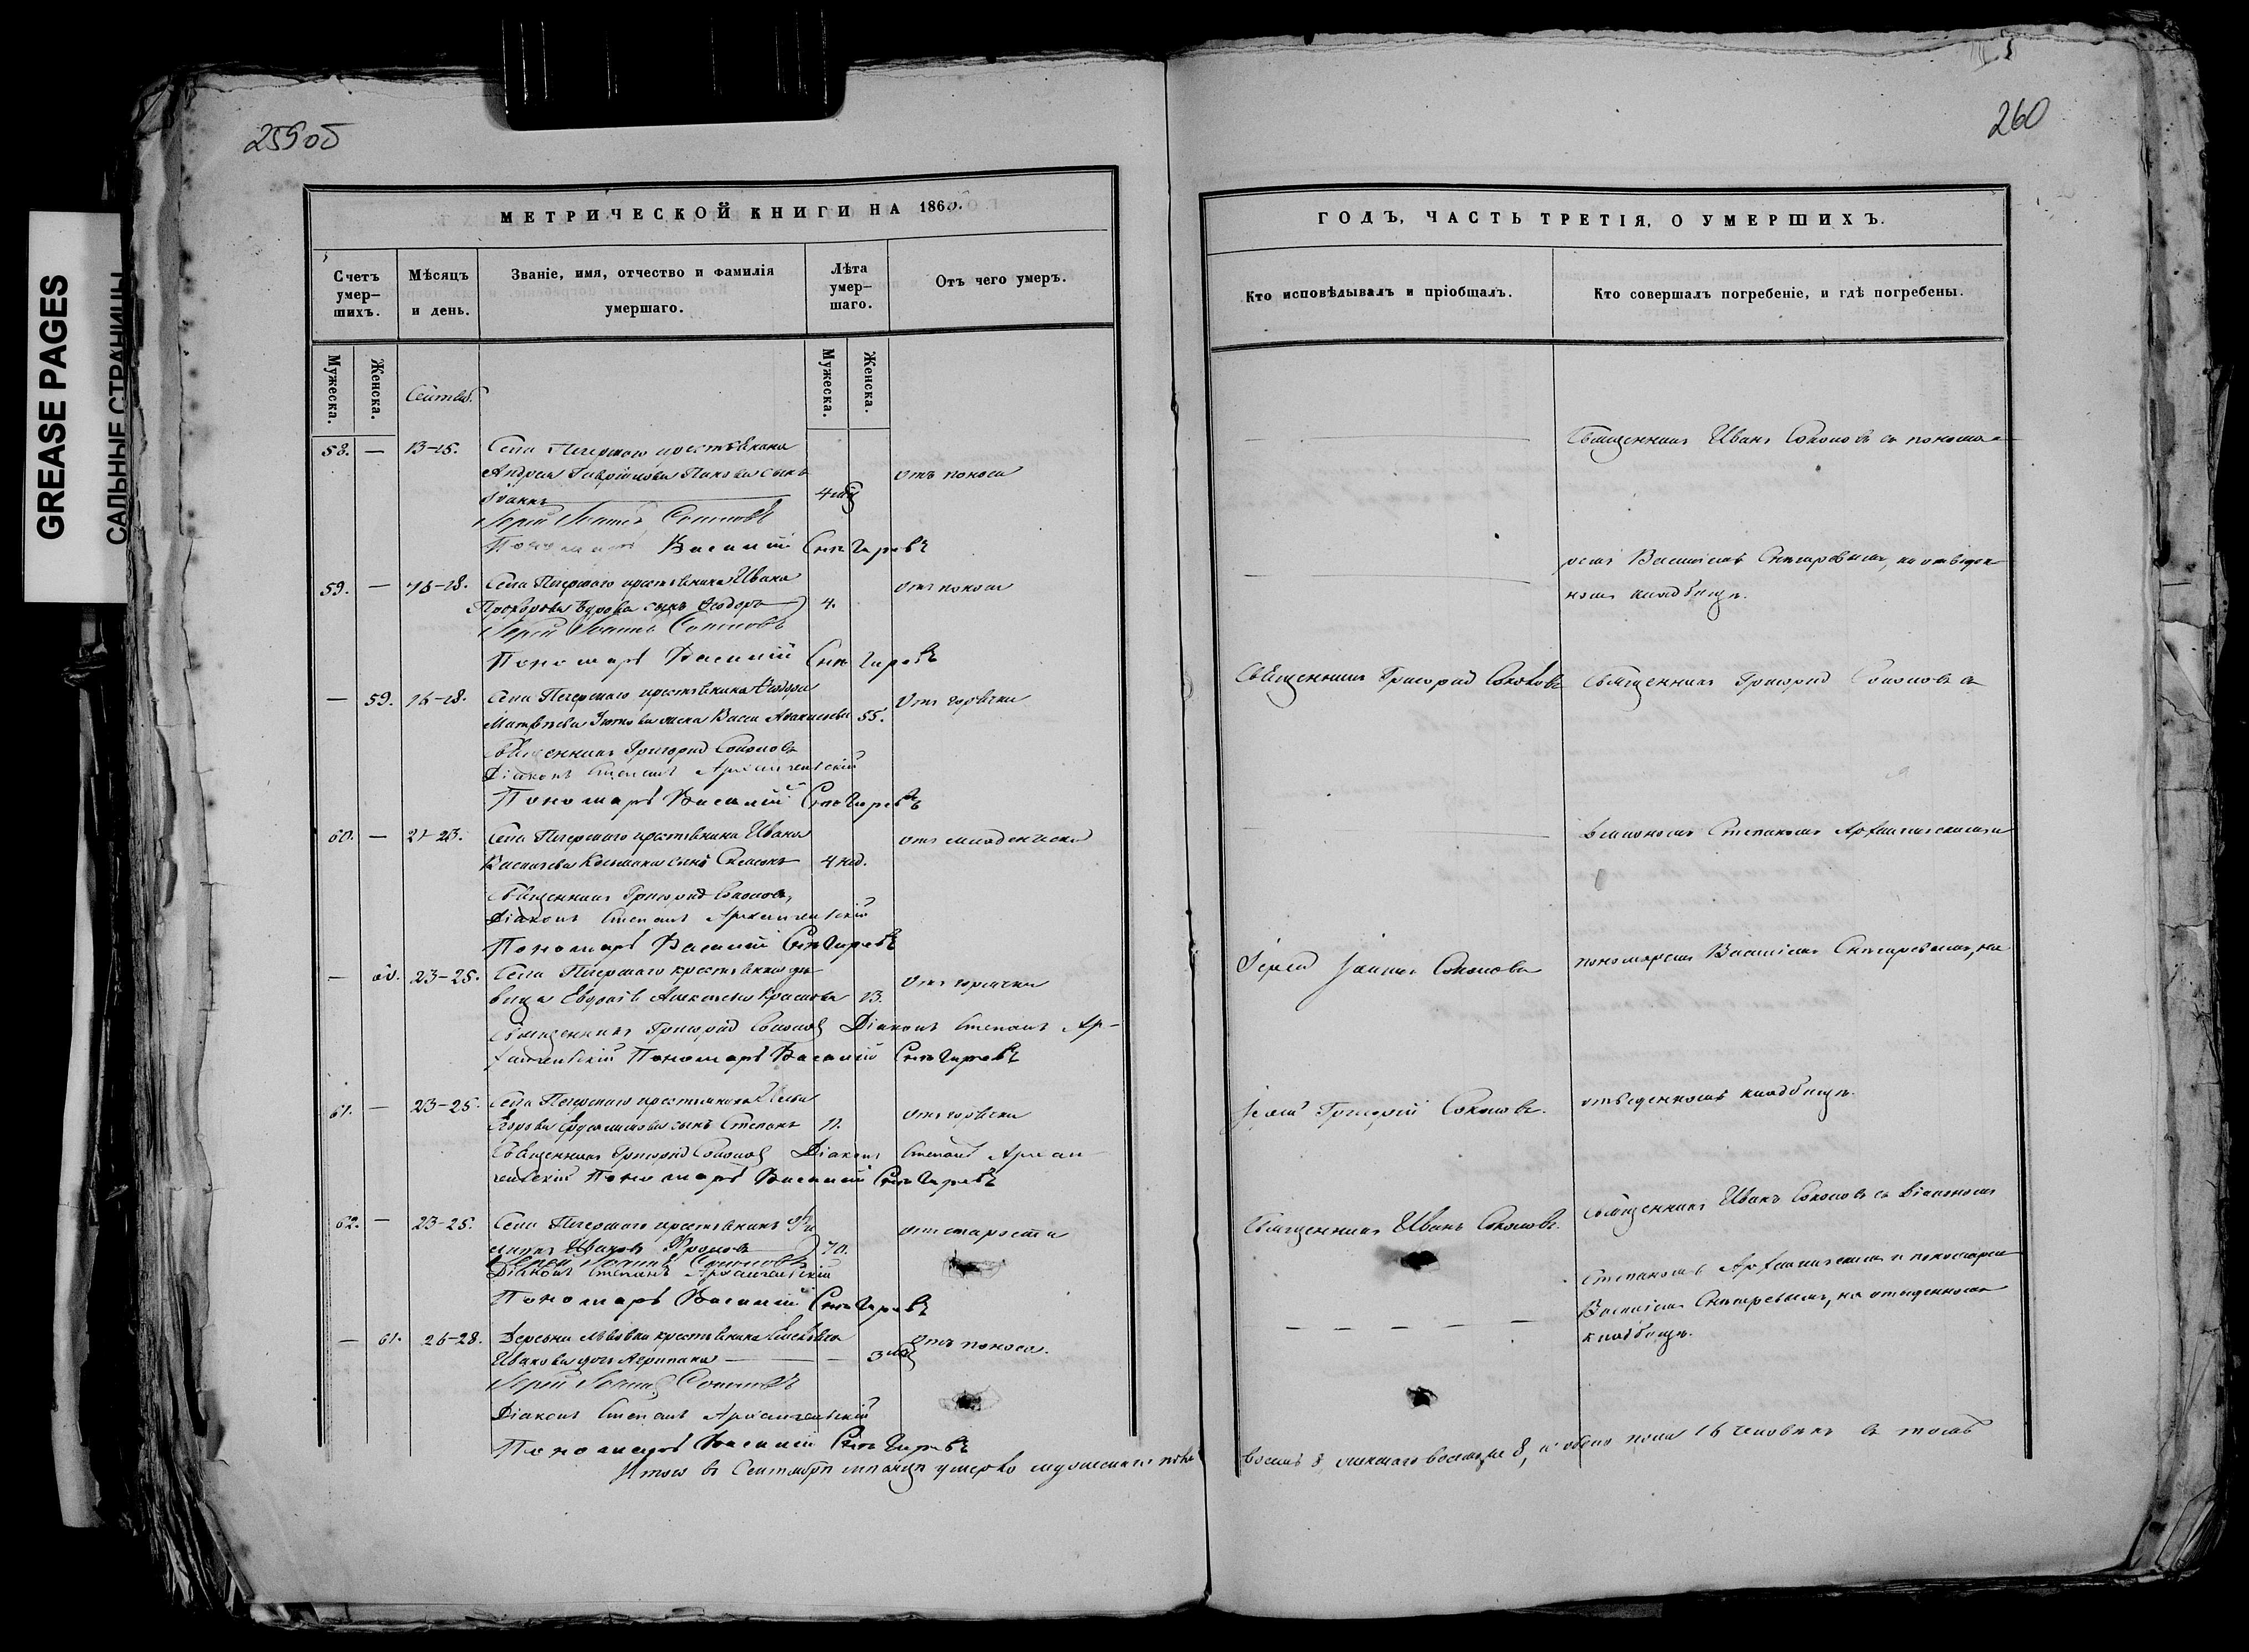 GREASE PAGES
САЛЬНЫЕ СТРАНИЦЫ
259об
МЕТРИЧЕСКОЙ КНИГИ НА 1860.
Счетъ умер-шихъ.
Мѣсяцъ и день.
Званіе, имя, отчество и фамилія умершаго.
Лѣта умер-шаго.
Отъ чего умеръ.
Мужеска.
Женска.
Мужеска.
Женска.
Сентяб.
58. — 13-15. Села Печерскаго крестьянина
Андрея Гаврилова Панова сынъ
Іоаннъ 4 мѣ отъ поноса
Іерей Іоаннъ Соколовъ
Пономарь Василій Снѣгиревъ
59. — 16-18. Села Печерскаго крестьянина Ивана
Прохорова сынъ Ѳеодоръ 4. отъ поноса
Іерей Іоаннъ Соколовъ
Пономарь Василій Снѣгиревъ
— 59. 16-18. Села Печерскаго крестьянина Ѳеодора
Матвѣева жена 55. Отъ горячки
Священникъ Григорій Соколовъ
Діаконъ Степанъ Архангельскій
Пономарь Василій Снѣгиревъ
60. — 21-23. Села Печерскаго крестьянина Ивана
Васильева сынъ Симеонъ 4 нед. отъ младенческой
Священникъ Григорій Соколовъ
Діаконъ Степанъ Архангельскій
Пономарь Василій Снѣгиревъ
— 60. 23-25. Села Печерскаго крестьянская дѣ
вица Алексѣева 13. Отъ горячки
Священникъ Григорій Соколовъ Діаконъ Степанъ Ар-
хангельскій Пономарь Василій Снѣгиревъ
61. — 23-25. Села Печерскаго крестьянина
Егорова сынъ Степанъ 11. отъ горячки
Священникъ Григорій Соколовъ Діаконъ Степанъ Архан
гельскій Пономарь Василій Снѣгиревъ
62. — 23-25. Села Печерскаго крестьянинъ Фи
липпъ Ивановъ Фроловъ 70. отъ старости
Іерей Іоаннъ Соколовъ
Діаконъ Степанъ Архангельскій
Пономарь Василій Снѣгиревъ
— 61. 26-28. Деревни Львовки крестьянина
Иванова дочь Агрипина 3 мѣ Отъ поноса.
Іерей Іоаннъ Соколовъ
Діаконъ Степанъ Архангельскій
Пономарь Василій Снѣгиревъ
Итого въ Сентябрѣ мѣсяцѣ умерло мужескаго пола
260
ГОДЪ, ЧАСТЬ ТРЕТІЯ, О УМЕРШИХЪ.
Кто исповѣдывалъ и пріобщалъ.
Кто совершалъ погребеніе, и гдѣ погребены.
Священникъ Иванъ Соколовъ съ понома-
ремъ Василіемъ Снѣгиревымъ, на отведен-
номъ кладбищѣ.
Священникъ Григорій Соколовъ
Священникъ Григорій Соколовъ съ
діакономъ Степаномъ Архангельскимъ и
Іерей Іоаннъ Соколовъ
пономаремъ Василіемъ Снѣгиревымъ, на
Іерей Григорій Соколовъ.
отведенномъ кладбищѣ.
Священникъ Иванъ Соколовъ.
Священникъ Иванъ Соколовъ съ діакономъ
Степаномъ Архангельскимъ и пономаремъ
Василіемъ Снѣгиревымъ, на отведенномъ
кладбищѣ.
восемь 8, женскаго восемь 8, и обоего пола 16 человѣкъ въ томъ